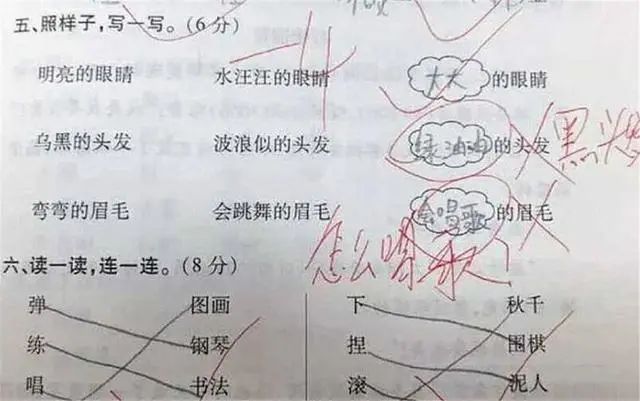 五、照样子,写一写。(6分)
明亮的眼睛 水汪汪的眼睛 大大的眼睛
乌黑的头发 波浪似的头发 绿油油的头发 黑
弯弯的眉毛 会跳舞的眉毛 会唱歌的眉毛
怎么唱歌
六、读一读,连一连。(8分)
弹 图画 下 秋千
练 钢琴 捏 围棋
唱 书法 滚 泥人